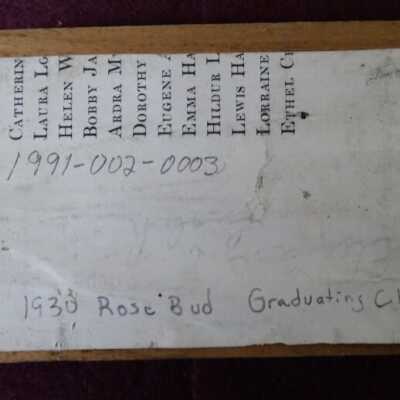 CATHERIN
LAURA LO
HELEN W
BOBBY JA
ARDRA M
DOROTHY
EUGENE A
EMMA HA
HILDUR L
LEWIS HA
LORRAINE
ETHEL C
1991-002-0003
1930 Rose Bud Graduating Cl